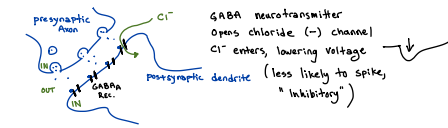 presynaptic
Axon
Cl⁻
IN
OUT
GABA_A
Rec.
IN
postsynaptic dendrite
GABA neurotransmitter
Opens chloride (-) channel
Cl⁻ enters, lowering voltage
(less likely to spike,
"Inhibitory")